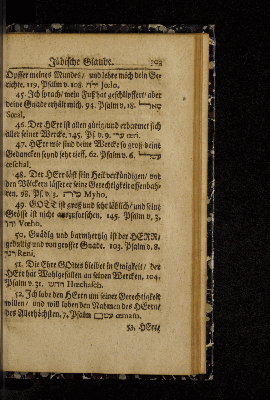 Jüdische Glaube. 103
Opffer meines Mundes/ und lehre mich dein Ge-
richte. 119. Psalm v. 108. Jœlo.
45. Ich sprach/ mein Fuß hat geschlüpffert/ aber
deine Gnade erhält mich. 94. Psalm v. 18.
Sœal.
46. Der HErr ist allen gütig/ und erbarmet sich
aller seiner Wercke. 145. Ps. v. 9. œri.
47. HErr wie sind deine Wercke so groß/ deine
Gedancken seynd sehr tieff. 62. Psalm v. 6.
œeschal.
48. Der HErr läst sein Heil verkündigen/ vor
den Völckern lässet er seine Gerechtigkeit offenbah-
ren. 98. Ps. v. 3. Myho.
49. GOTT ist groß und sehr löblich/ und seine
Grösse ist nicht auszforschen. 145. Psalm v. 3.
Vœho.
50. Gnädig und barmhertzig ist der HERR/
gedultig und von grosser Gnade. 103. Psalm v. 8.
Rœni.
51. Die Ehre GOttes bleibet in Ewigkeit/ der
HErr hat Wohlgefallen an seinen Wercken. 104.
Psalm v. 31. Hœchasch.
52. Ich lobe den HErrn um seiner Gerechtigkeit
willen/ und will loben den Nahmen des HErrn/
des Allerhöchsten. 7. Psalm œmam.
53. HErr/